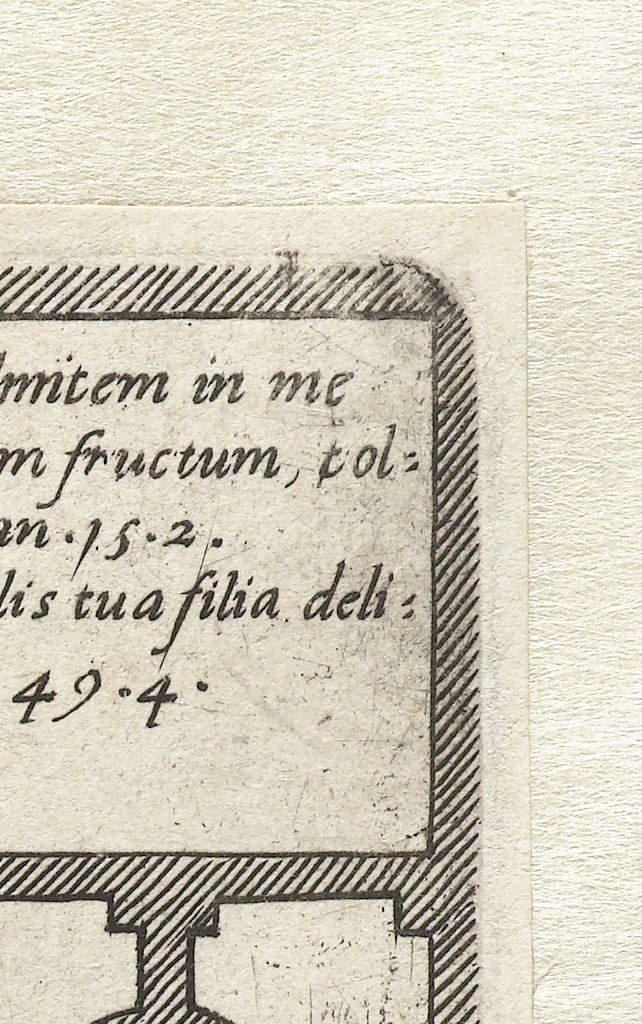 lmitem in me
m fructum, tol:
an .15.2.
lis tua filia deli:
49.4.